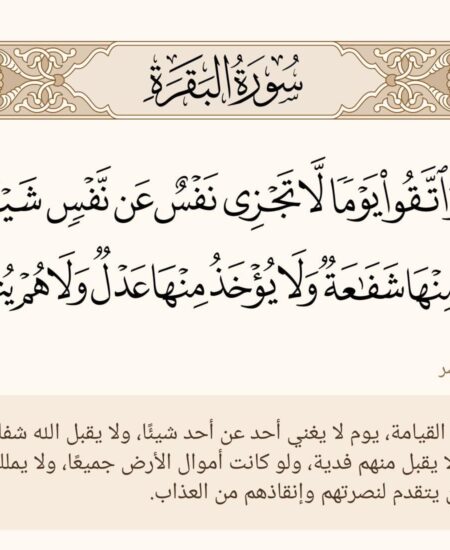 سُورَةُ البَقَرَةِ
ٱتَّقُوا۟ يَوْمًا لَّا تَجْزِى نَفْسٌ عَن نَّفْسٍ
شَفَٰعَةٌ وَلَا يُؤْخَذُ مِنْهَا عَدْلٌ وَلَا هُمْ
القيامة، يوم لا يغني أحد عن أحد شيئًا، ولا يقبل الله
يقبل منهم فدية، ولو كانت أموال الأرض جميعًا، ولا
يتقدم لنصرتهم وإنقاذهم من العذاب.